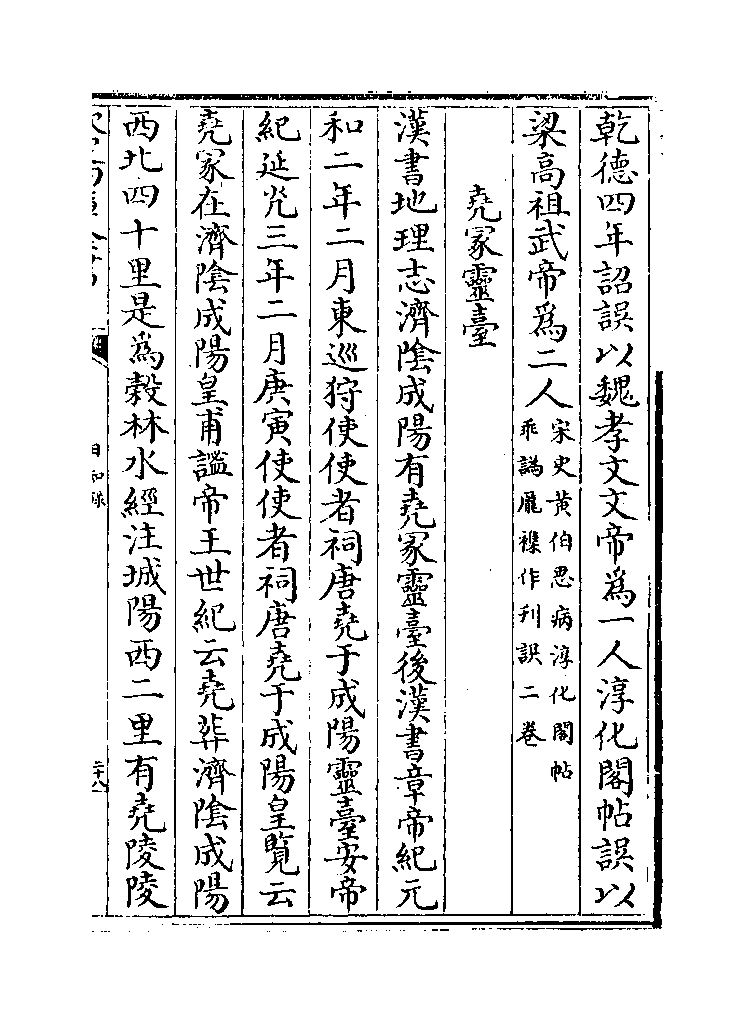 乾德四年詔誤以魏孝文文帝為一人淳化閣帖誤以
梁高祖武帝為二人宋史黄伯思病淳化閣帖
乖譌龎襍作刋誤二卷
堯冡靈臺
漢書地理志濟隂成陽有堯冡靈臺後漢書章帝紀元
和二年二月東巡狩使使者祠唐堯于成陽靈臺安帝
紀延光三年二月庚寅使使者祠唐堯于成陽皇覽云
堯冡在濟隂成陽皇甫謐帝王世紀云堯葬濟隂成陽
西北四十里是為榖林水經注城陽西二里有堯陵陵
日知録
二十八